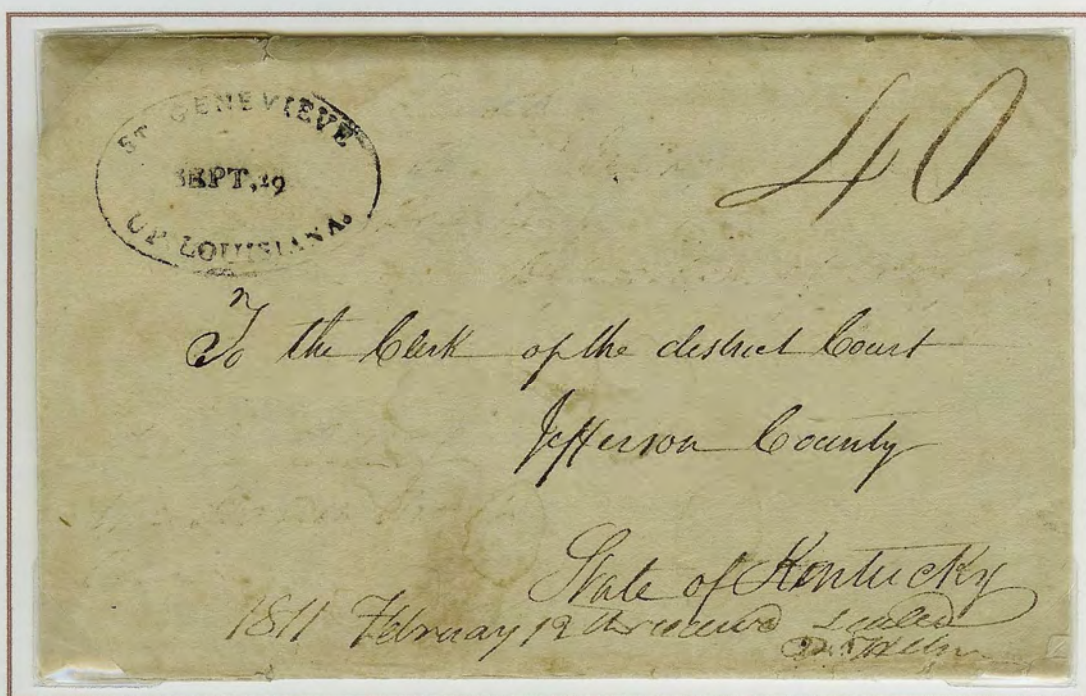 ST. GENEVIEVE
SEPT, 29
UP. LOUISIANA.
40
To the Clerk of the district Court
Jefferson County
State of Kentucky
1811 February 12th received Sealed